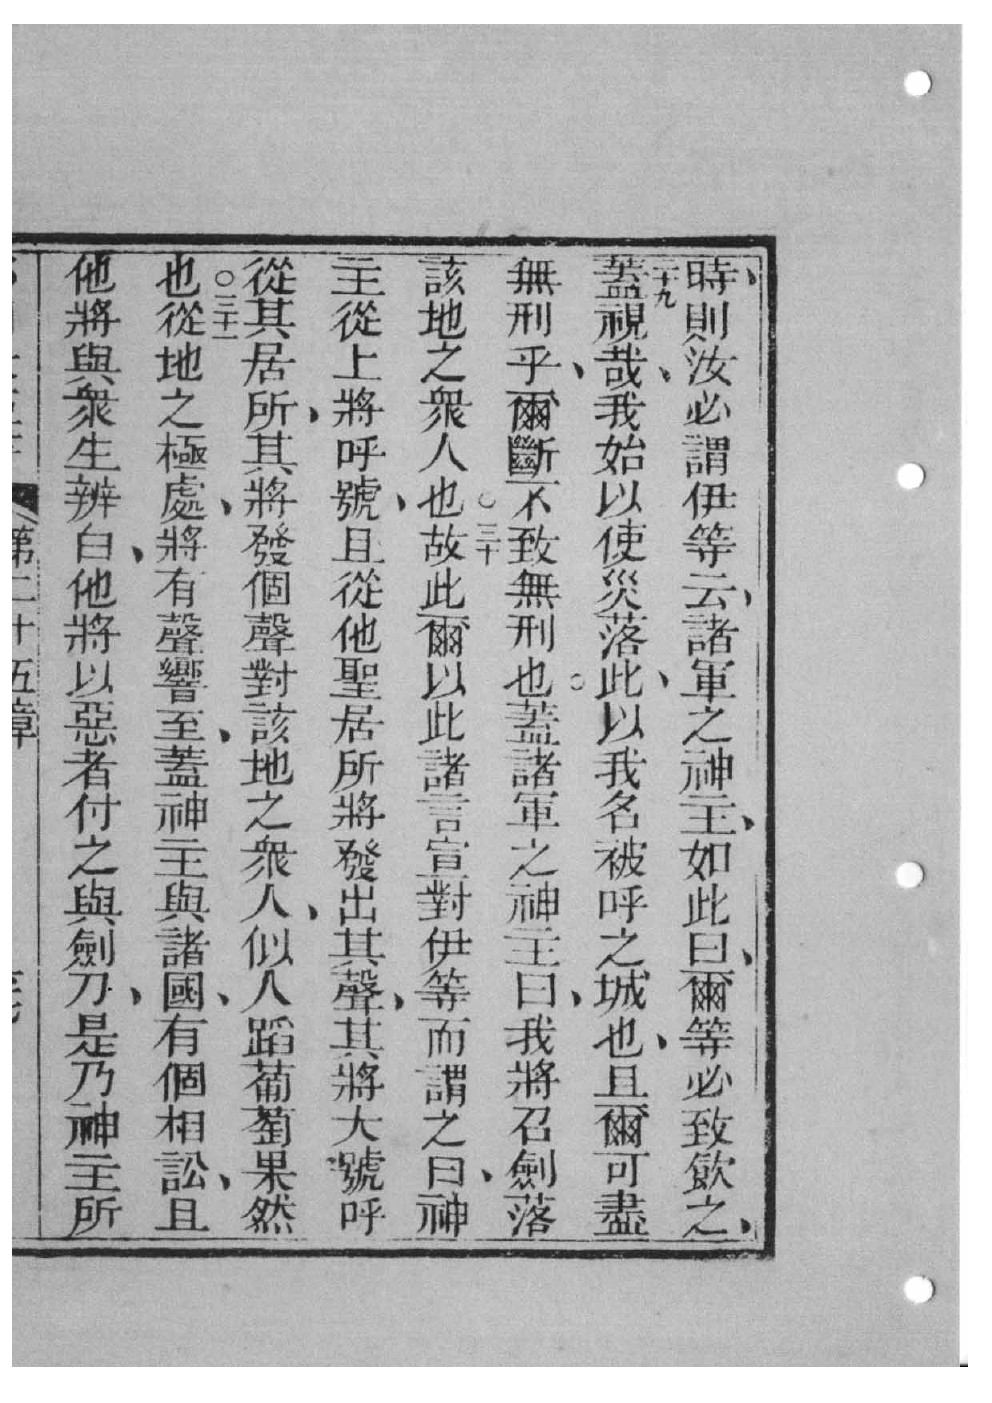 時、則汝必謂伊等云、諸軍之神主、如此曰、爾等必致飲之、
二十九蓋視哉、我始以使災落此、以我名被呼之城也、且爾可盡
無刑乎、爾斷不致無刑也○蓋諸軍之神主曰、我將召劍落
該地之衆人也○三十故此爾以此諸言宣對伊等而謂之曰、神
主從上將呼號、且從他聖居所將發出其聲、其將大號呼
從其居所、其將發個聲對該地之衆人、似人蹈葡萄果然
也○三十一從地之極處、將有聲響至、蓋神主與諸國、有個相訟、且
他將與衆生辨白、他將以惡者付之與劍刀、是乃神主所
第二十五章